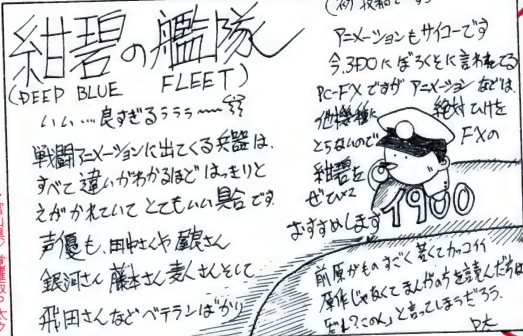 紺碧の艦隊
(DEEP BLUE FLEET)
いい…良すぎるううう〜〜
戦闘アニメーションに出てくる兵器は、
すべて違いがわかるほどはっきりと
えがかれていてとてもいい具合です
声優も、田中さんや屋良さん
銀河さん 藤本さん 麦人さんそして
飛田さんなどベテランばかり
アニメーションもサイコーです
今、3DOにぼろくそに言われてる
PC-FXですが アニメーションなどは、
他機種に絶対ひけを
とらないのでFXの
紺碧を
ぜひ
おすすめします
1900
前原がものすごく若くてカッコイイ
原作じゃなくてまんがの方を読んだ方は
と言ってしまうだろう。